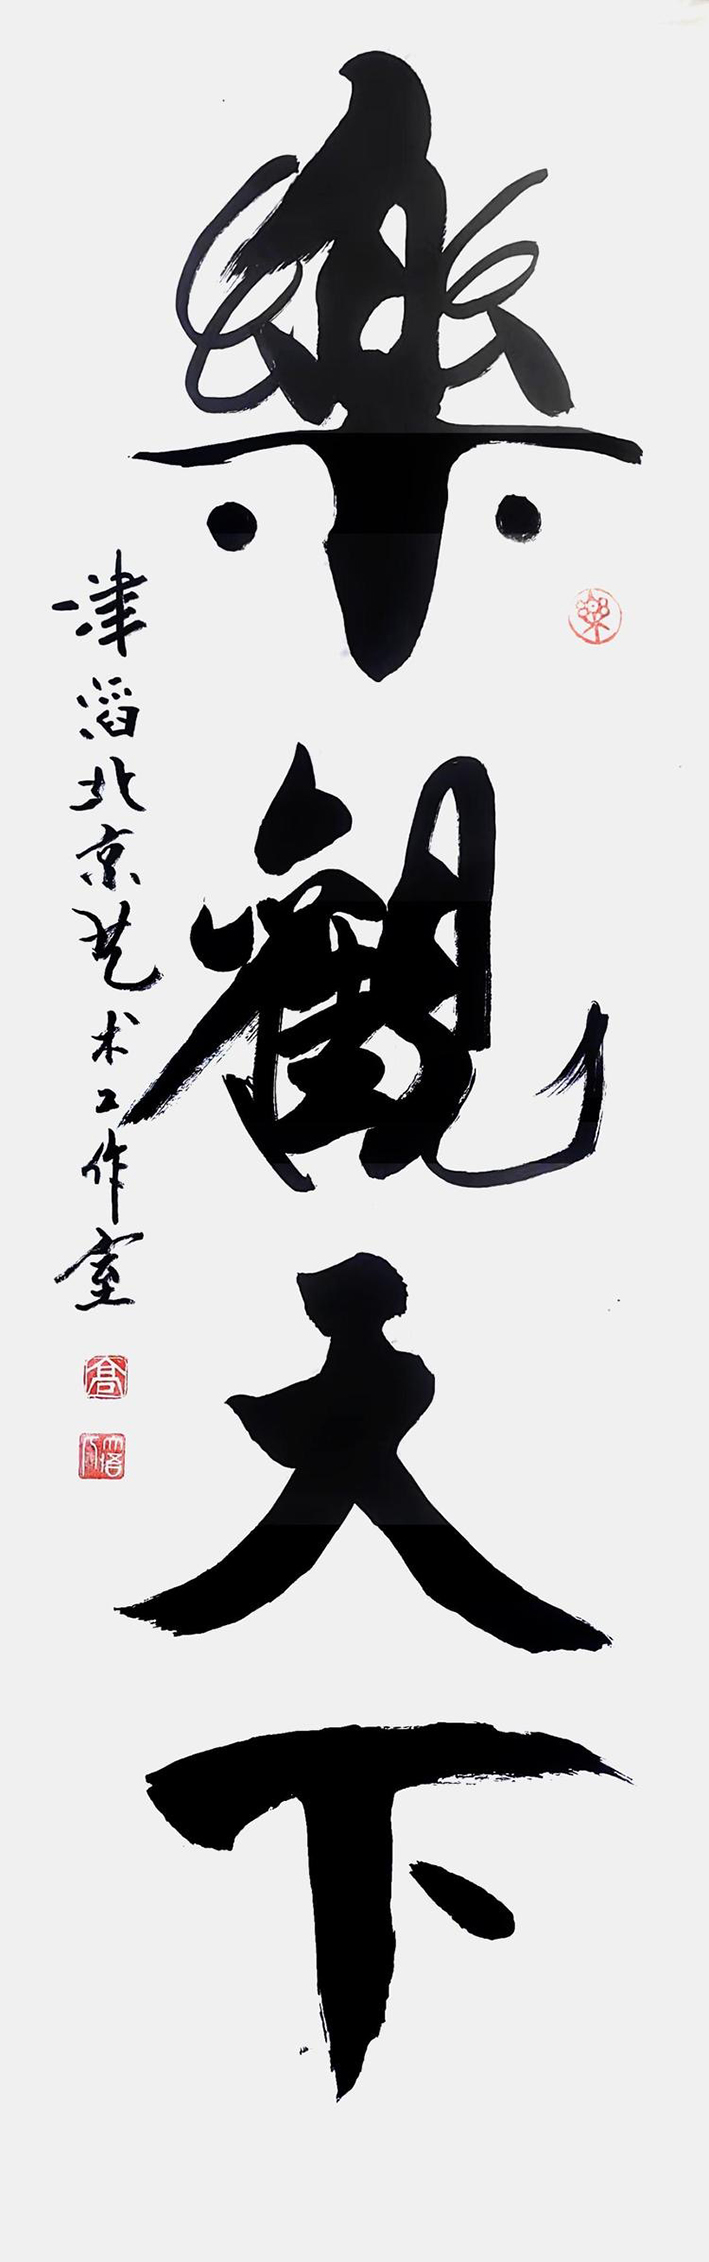 樂觀天下
樂
津滔北京艺术工作室
高